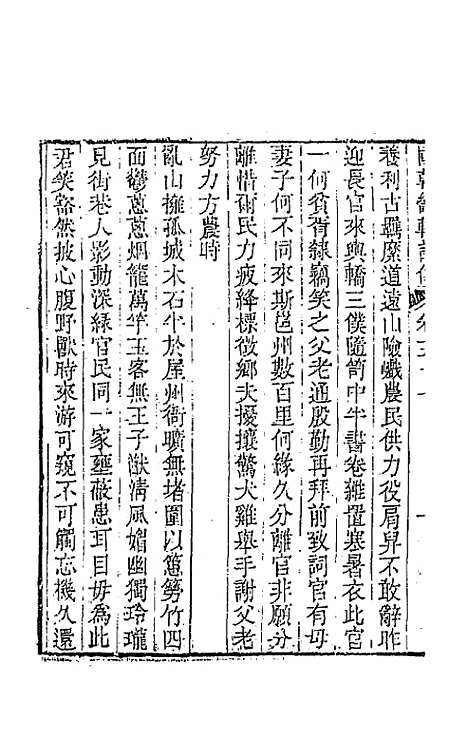 養利古羈縻道遠山險巇農民供力役肩舁不敢辭昨
迎長官來輿轎三僕隨笥中半書卷雜置寒暑衣此官
一何貧胥隸竊笑之父老通殷勤再拜前致詞官有母
妻子何不同來斯邕州數百里何緣久分離官非願分
離惜爾民力疲絳標徵鄉夫擾攘驚犬雞舉手謝父老
努力方農時
亂山擁孤城木石半於屋州衙曠無堵圍以䈽簩竹四
面鬱蔥蔥烟籠萬竿玉客無王子猷淸風媚幽獨玲瓏
見街巷人影動深綠官民同一家壅蔽患耳目毋爲此
君笑豁然披心腹野獸時來游可窺不可觸忘機久還